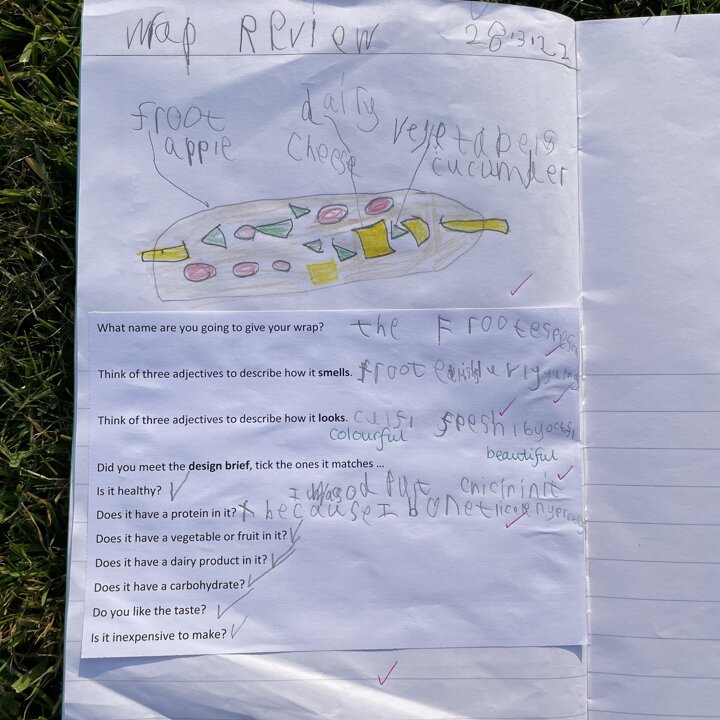 Wrap Review 28.3.22
froot
apple
dairy
cheese
vegetabers
cucumber
What name are you going to give your wrap? the Frootespeshl
Think of three adjectives to describe how it smells. froot
Think of three adjectives to describe how it looks. fresh
colourful
beautiful
Did you meet the design brief, tick the ones it matches ...
Is it healthy? I put
Does it have a protein in it? because I
Does it have a vegetable or fruit in it?
Does it have a dairy product in it?
Does it have a carbohydrate?
Do you like the taste?
Is it inexpensive to make?